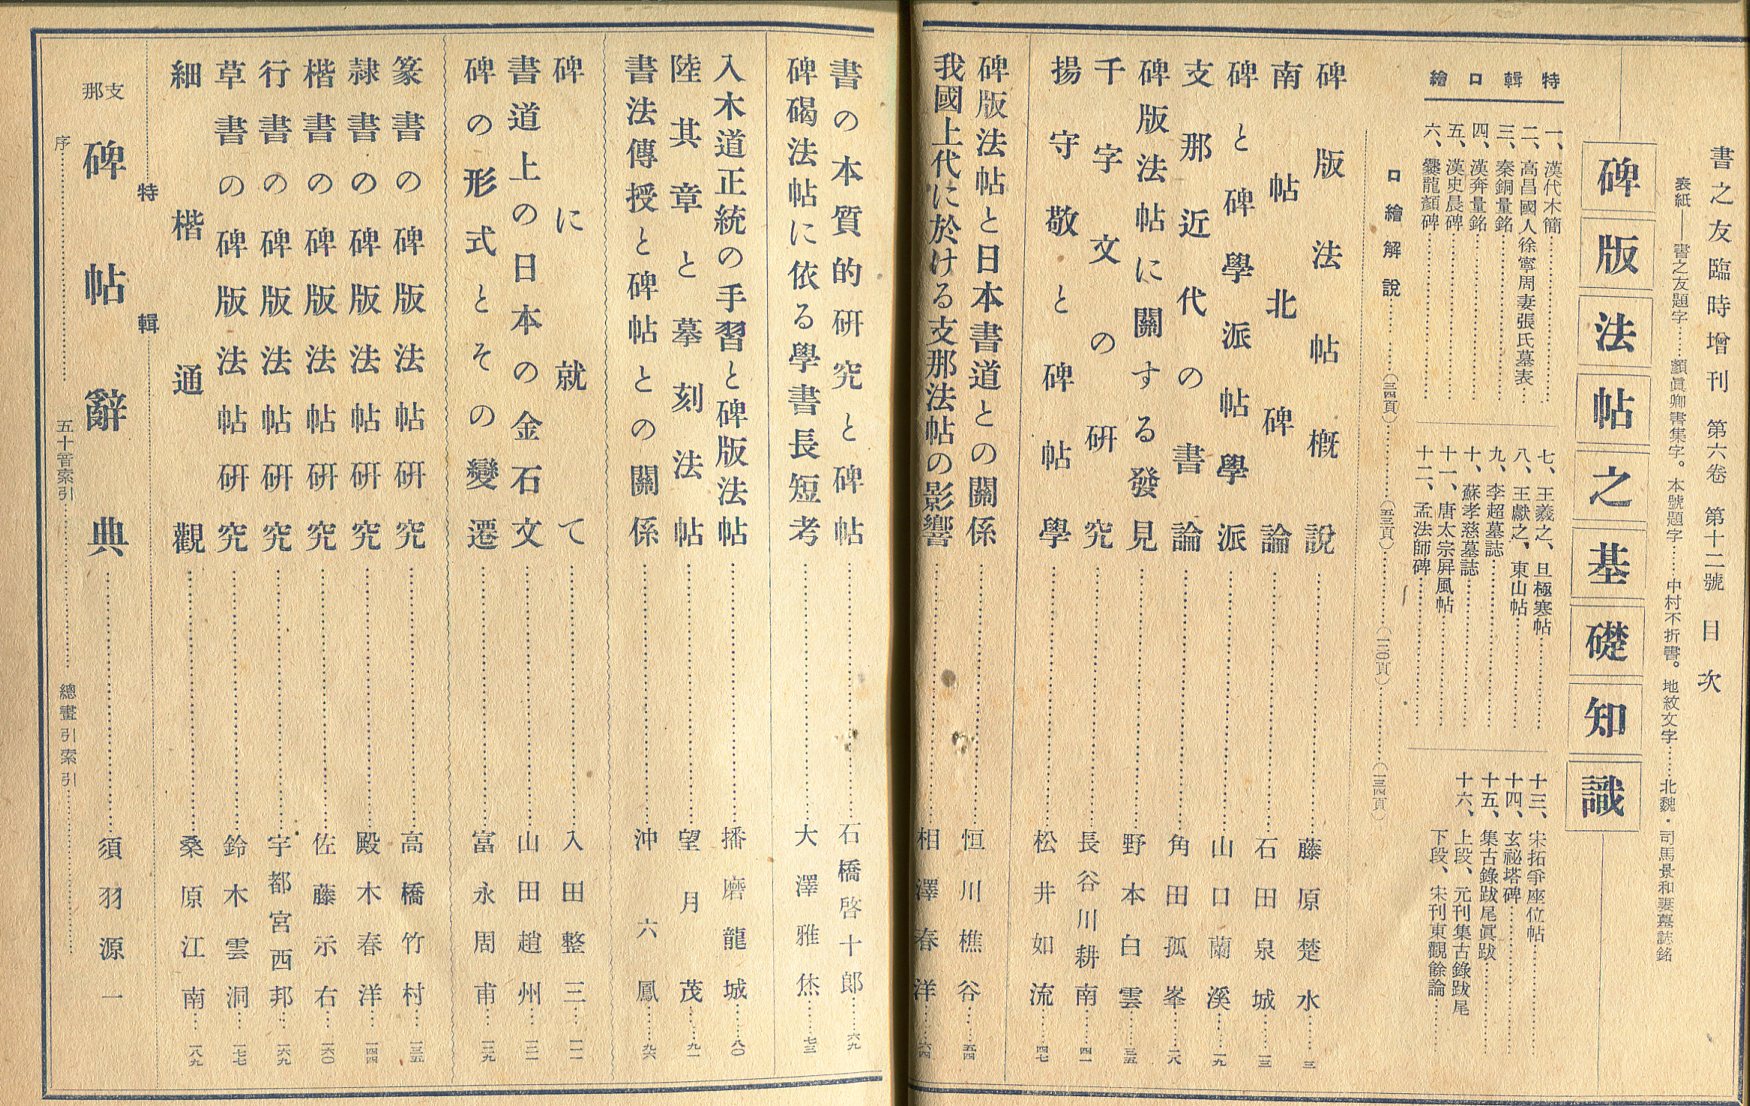 書之友臨時增刊 第六卷 第十二號 目次
表紙――書之友題字……顏眞卿書集字。本號題字……中村不折書。地紋文字……北魏・司馬景和妻墓誌銘
碑版法帖之基礎知識
特輯口繪
一、漢代木簡
二、高昌國人徐寧周妻張氏墓表
三、秦銅量銘
四、漢奔量銘
五、漢史晨碑
六、爨龍顏碑
七、王羲之、旦極寒帖
八、王獻之、東山帖
九、李超墓誌
十、蘇孝慈墓誌
十一、唐太宗屏風帖
十二、孟法師碑
十三、宋拓爭座位帖
十四、玄祕塔碑
十五、集古錄跋尾眞跋
十六、上段、元刊集古錄跋尾
下段、宋刊東觀餘論
口繪解說……(三四頁)……(五三頁)……(一二〇頁)……(一三四頁)
碑版法帖槪說……藤原楚水……三
南帖北碑論……石田泉城……一三
碑と碑學派帖學派……山口蘭溪……一九
支那近代の書論……角田孤峯……二八
碑版法帖に關する發見……野本白雲……三五
千字文の硏究……長谷川耕南……四一
揚守敬と碑帖學……松井如流……四七
碑版法帖と日本書道との關係……恒川樵谷……五四
我國上代に於ける支那法帖の影響……相澤春洋……六四
書の本質的硏究と碑帖……石橋啓十郎……六九
碑碣法帖に依る學書長短考……大澤雅休……七三
入木道正統の手習と碑版法帖……播磨龍城……八〇
陸其章と摹刻法帖……望月茂……九一
書法傳授と碑帖との關係……沖六鳳……九六
碑に就て……入田整三……一一一
書道上の日本の金石文……山田趙州……一二一
碑の形式とその變遷……富永周甫……一二九
篆書の碑版法帖硏究……高橋竹村……一三五
隷書の碑版法帖硏究……殿木春洋……一四四
楷書の碑版法帖硏究……佐藤示右……一六〇
行書の碑版法帖硏究……宇都宮西邦……一六九
草書の碑版法帖硏究……鈴木雲洞……一七七
細楷通觀……桑原江南……一八九
特輯
支那 碑帖辭典……須羽源一
序……五十音索引……總畫引索引……